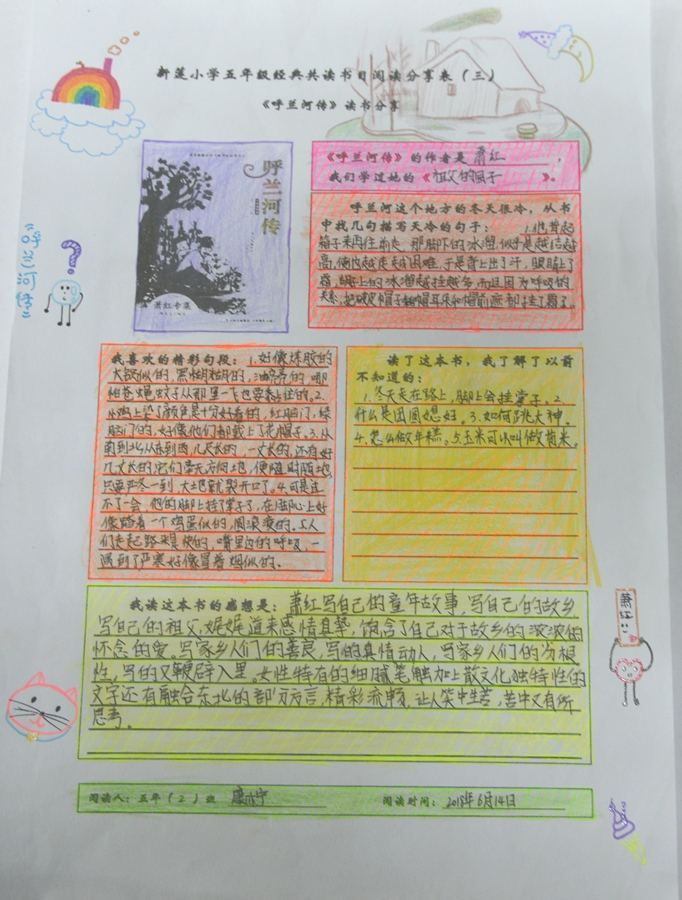 新莲小学五年级经典共读书目阅读分享表（三）
《呼兰河传》读书分享
呼兰河传
萧红专集
《呼兰河传》的作者是 萧红
我们学过她的《祖父的园子》。
呼兰河这个地方的冬天很冷，从书
中找几句描写天冷的句子：1.他背起
箱子来再往前走，那脚下的冰溜，似乎是越结越
高，使他越走越困难，于是背上出了汗，眼睛上了
霜，胡子上的冰溜越挂越多，而且因为呼吸的
关系，把破皮帽子的帽耳朵和帽前遮都挂了霜了。
我喜欢的精彩句段：1.好像炼胶的
大锅似的，黑糊糊的，油亮亮的。哪
怕苍蝇蚊子从那里一飞也要粘住的。2.
小鸡上笼了颜色是十分好看的，红脑门，绿
脑门的，好像他们都戴上了花帽子。3.从
南到北，从东到西，几尺长的，一丈长的，还有好
几丈长的，它们毫无方向地，便随时随地，
只要严冬一到，大地就裂开口了。4.可是走
不了一会，他的脚上挂了掌子了，在脚心上好
像踏着一个鸡蛋似的，圆滚滚的。5.人
们走起路来是快的，嘴里边的呼吸，一
遇到了严寒好像冒着烟似的。
读了这本书，我了解了以前
不知道的：
1.冬天走在路上，脚上会挂掌子。2.
什么是团圆媳妇。3.如何跳大神。
4.怎么做年糕。5.玉米可以叫做苞米。
我读这本书的感想是：萧红写自己的童年故事，写自己的故乡
写自己的祖父，娓娓道来感情真挚，饱含了自己对于故乡的浓浓的
怀念的爱。写家乡人们的善良，写的真情动人，写家乡人们的劣根
性，写的又鞭辟入里。女性特有的细腻笔触加上散文化独特性的
文字还有融合东北的部方言，精彩流畅，让人笑中生苦，苦中又有所
思考。
阅读人：五年（2）班
阅读时间：2018年6月14日
呼兰河传
萧红